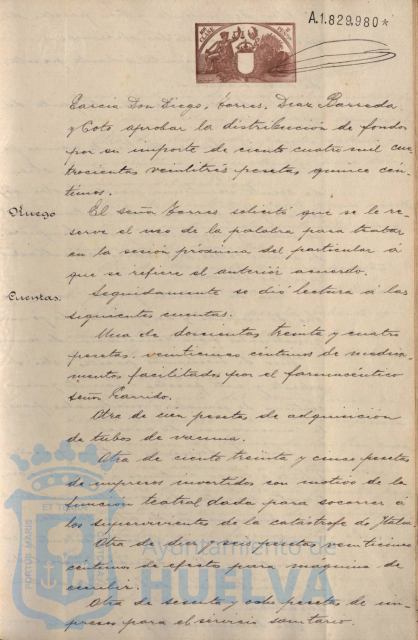 A.1.829,980*
García Don Diego, Torres, Diaz Barreda
y Coto aprobar la distribución de fondos
por su importe de ciento cuatro mil cua-
trocientas veintitrés pesetas quince cén-
timos.
Ruego
El señor Torres solicitó que se le re-
serve el uso de la palabra para tratar
en la sesión próxima del particular á
que se refiere el anterior acuerdo.
Cuentas.
Seguidamente se dió lectura á las
siguientes cuentas.
Una de doscientas treinta y cuatro
pesetas veinticinco centimos de medica-
mentos facilitados por el farmacéutico
señor Garrido.
Otra de cien pesetas de adquisición
de tubos de vacuna.
Otra de ciento treinta y cinco pesetas
de impresos invertidos con motivo de la
función teatral dada para socorrer a
los supervivientes de la catástrofe de Italia.
Otra de diez y seis pesetas veinticinco
centimos de efectos para maquina de
escribir.
Otra de sesenta y ocho pesetas de im-
presos para el servicio sanitario.
PORTUS MARIS
Ayuntamiento de
HUELVA